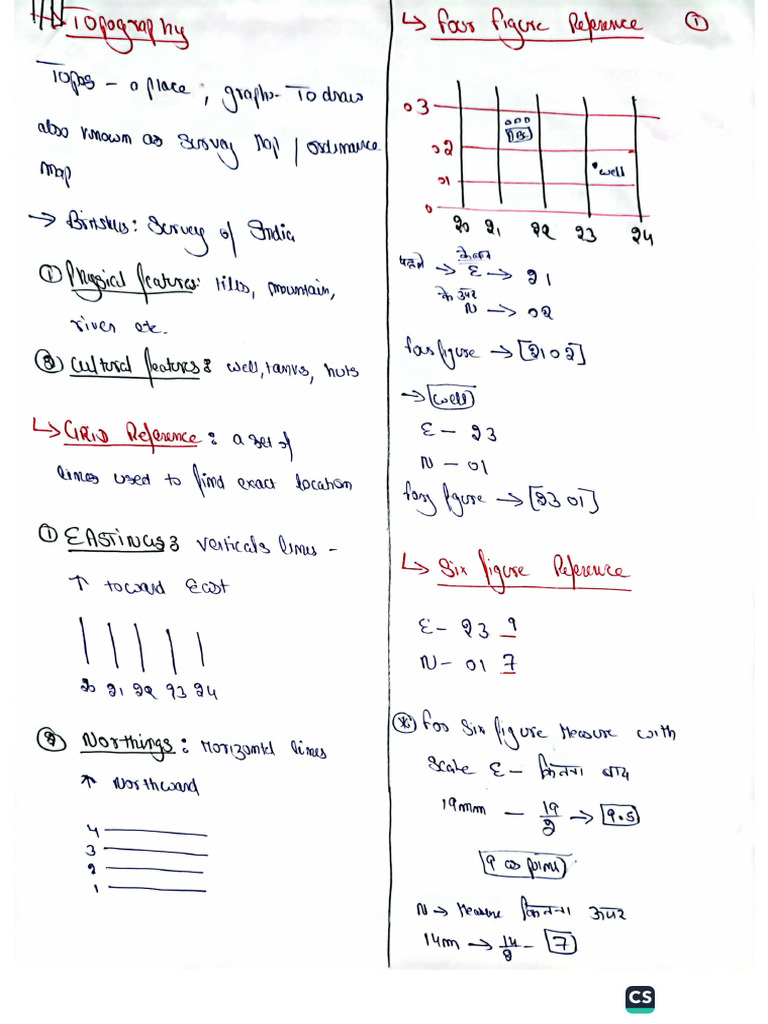 Topography
Topos - a place ; graph - To draw
also known as Survey Map / Ordinance
map
→ Britishers : Survey of India
① Physical features : Hills, mountain,
river etc.
② Cultural features : well, tanks, huts
↳ GRID Reference : a set of
lines used to find exact location
① EASTINGS : verticals lines -
↑ toward East
20 21 22 23 24
② Northings : Horizontal lines
↑ Northward
4
3
2
1
↳ Four Figure Reference ①
03
02
01
0
•well
20 21 22 23 24
पहले → E → 21
के ऊपर
N → 02
four figure → [2102]
→ well
E - 23
N - 01
four figure → [2301]
↳ Six figure Reference
E - 23 9
N - 01 7
* For six figure Measure with
Scale E - कितना बाद
19mm - 19/2 → 9.5
9 as point
N → Measure कितना ऊपर
14m → 14/2 - 7
CS